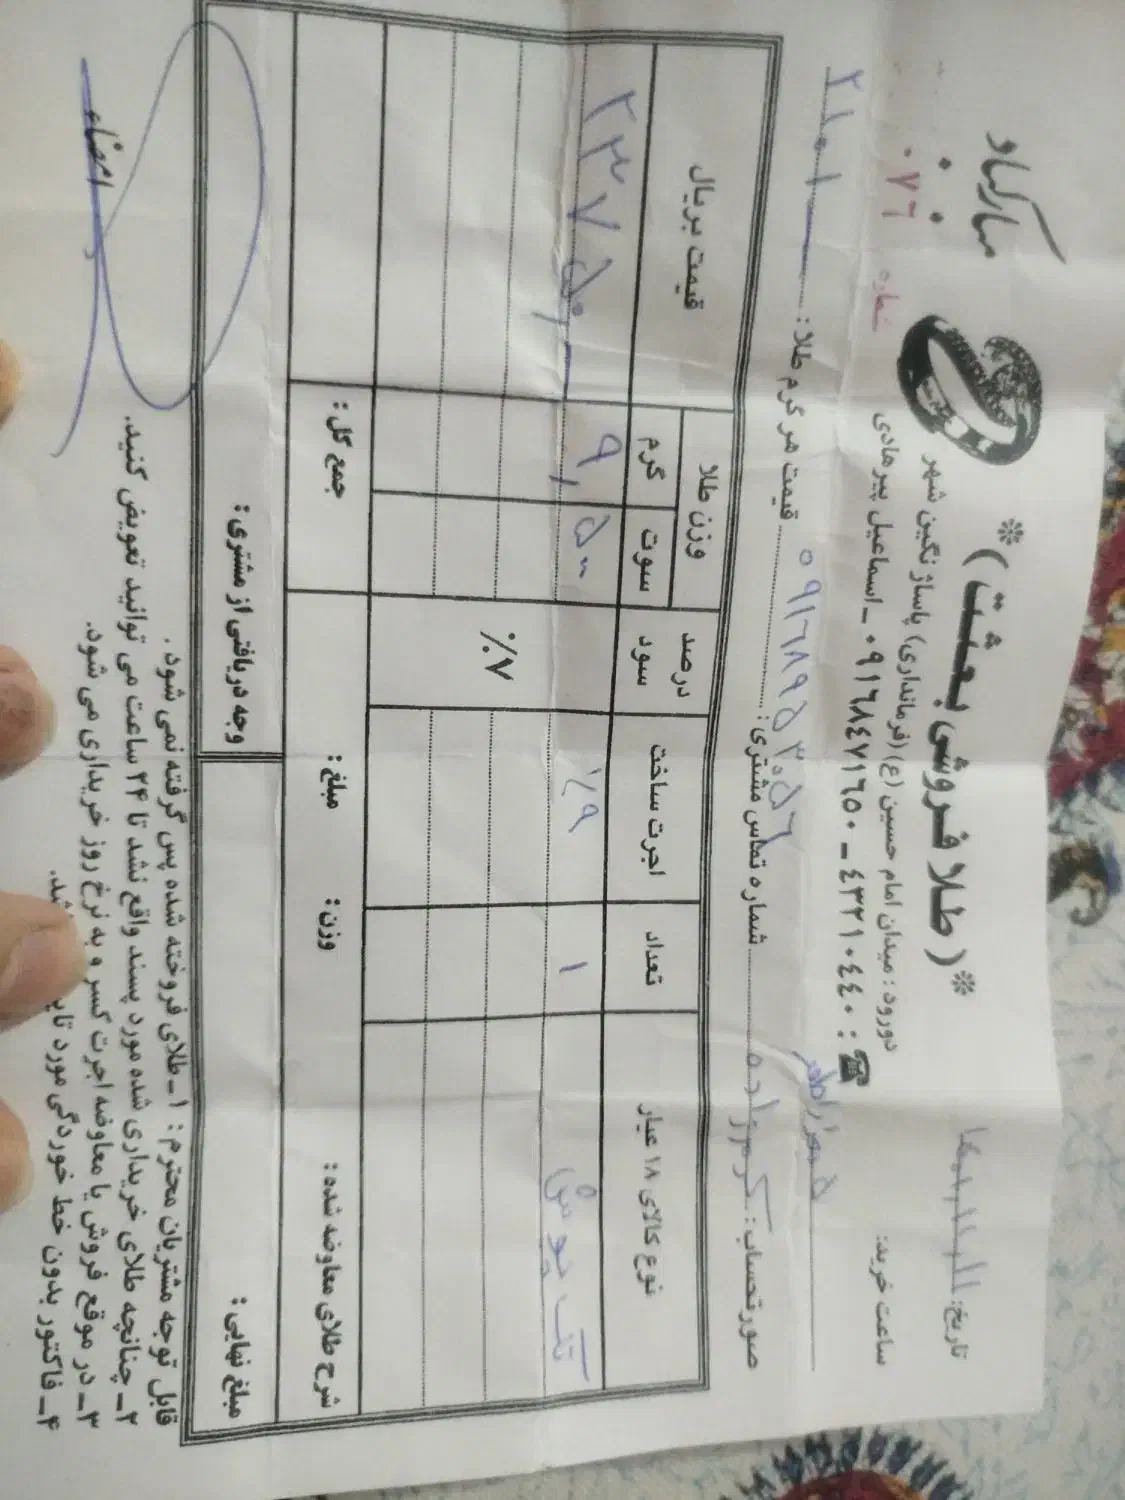 مبارکباد
*( طلا فروشی بعثت )*
دورود : میدان امام حسین (ع) (فرمانداری) پاساژ نگین شهر
☎ : ٤٣٢١٠٤٤٠ - ٠٩١٦٨٤٧١٦٥٠ - اسماعیل پیرهادی
تاریخ:
ساعت خرید:
شماره ٠٧٦
٠٩١٦٨٩٥٣٠٥٦
صورتحساب: کرم زاده شماره تماس مشتری: قیمت هر گرم طلا:
نوع کالای ۱۸ عیار تعداد اجرت ساخت درصد سود وزن طلا قیمت بریال
سوت گرم
تک پوش ۱ ٪۹ ۹٫۵۰۰ ۲۳۷۵۰
٪۷
شرح طلای معاوضه شده : وزن: مبلغ: جمع کل :
مبلغ نهایی : وجه دریافتی از مشتری :
قابل توجه مشتریان محترم : ۱_طلای فروخته شده پس گرفته نمی شود .
۲_ چنانچه طلای خریداری شده مورد پسند واقع نشد تا ۲۴ ساعت می توانید تعویض کنید.
۳_ در موقع فروش یا معاوضه اجرت کسر و به نرخ روز خریداری می شود.
۴_ فاکتور بدون خط خوردگی مورد
امضاء